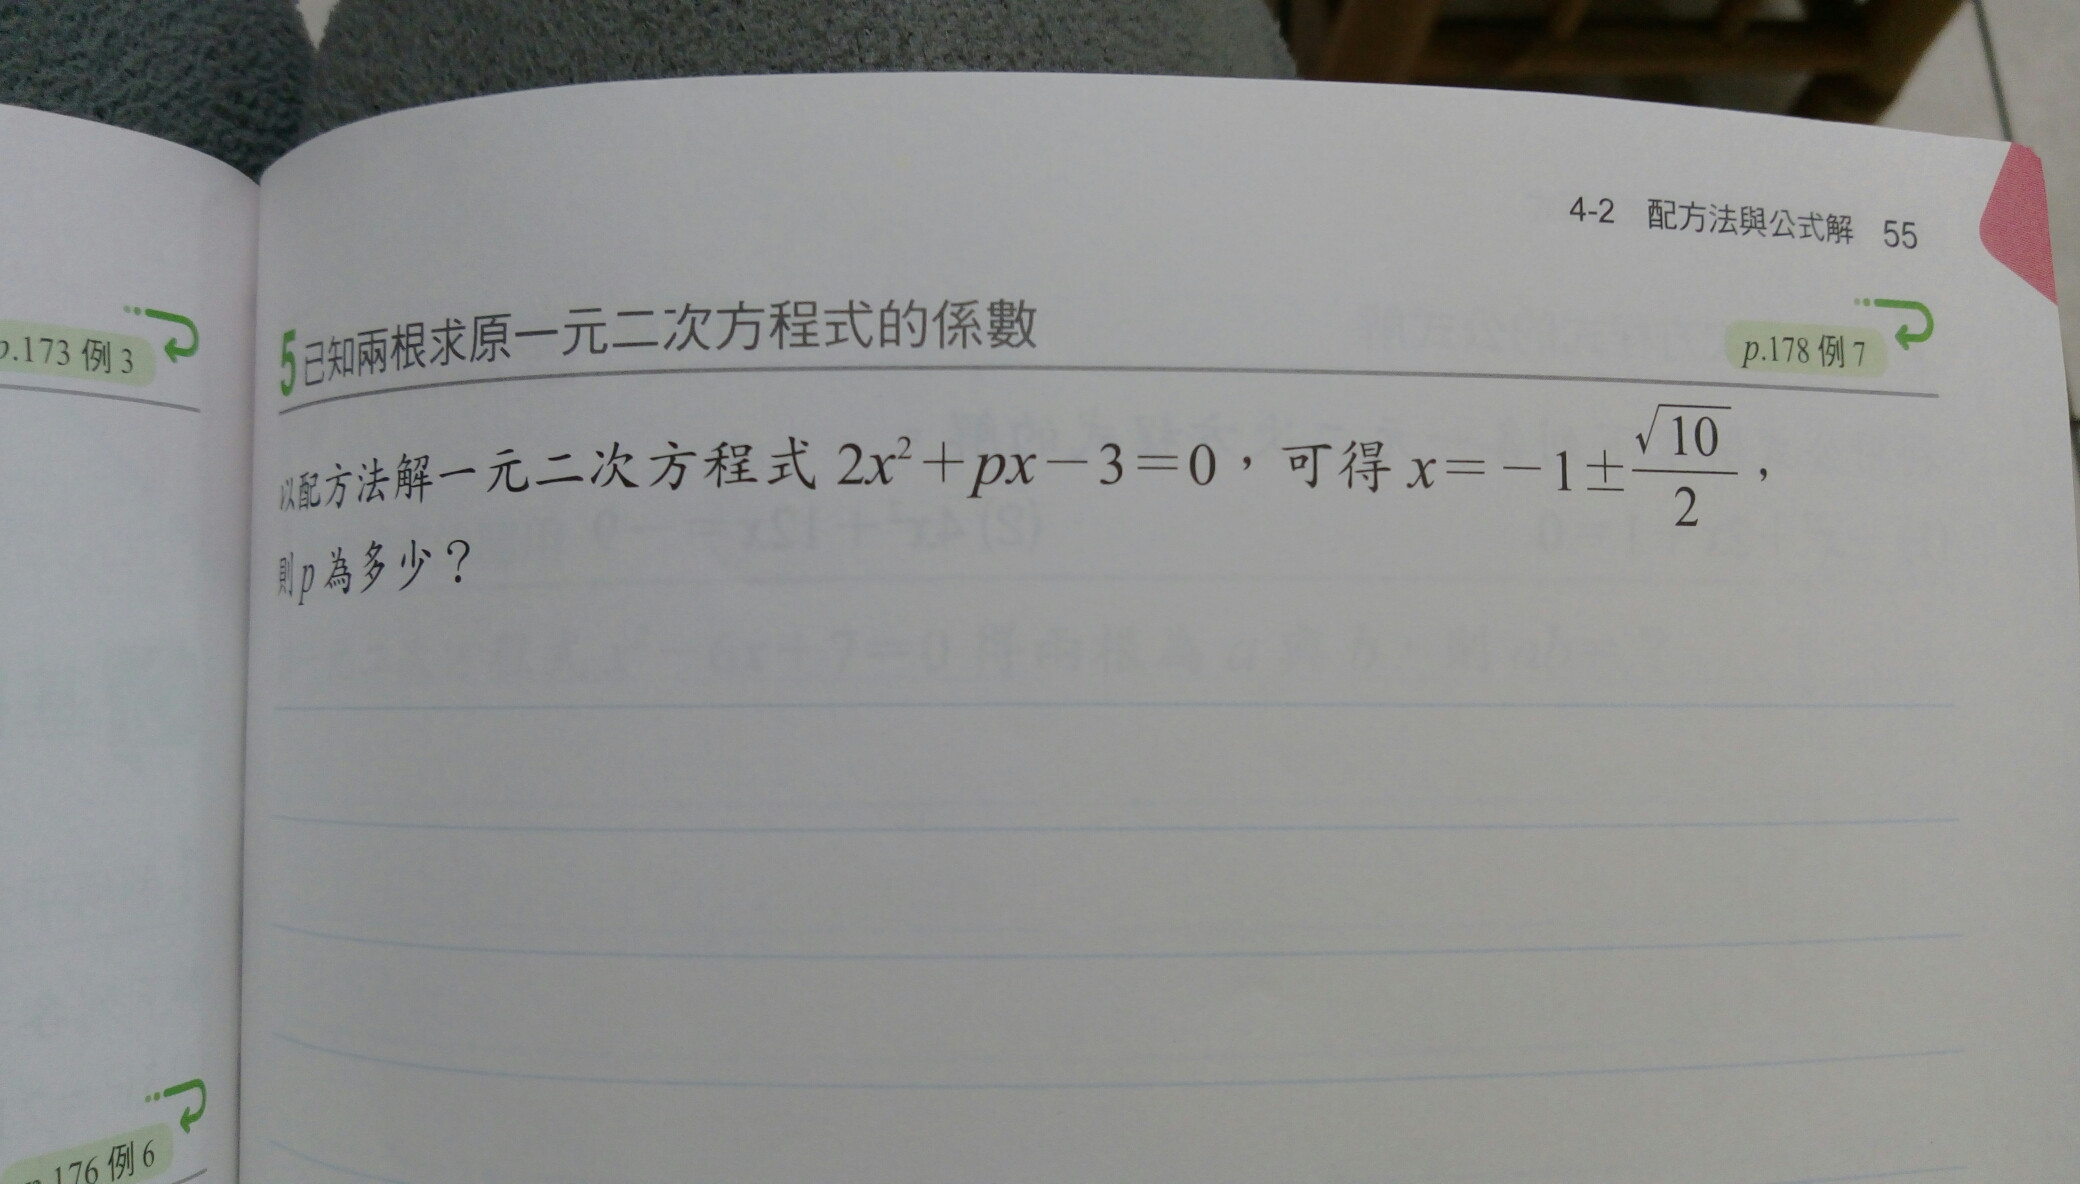 4-2 配方法與公式解 55
p.173 例 3
5 已知兩根求原一元二次方程式的係數
p.178 例 7
以配方法解一元二次方程式 2x²+px-3=0，可得 x=-1±√10/2，
則 p 為多少？
p.176 例 6